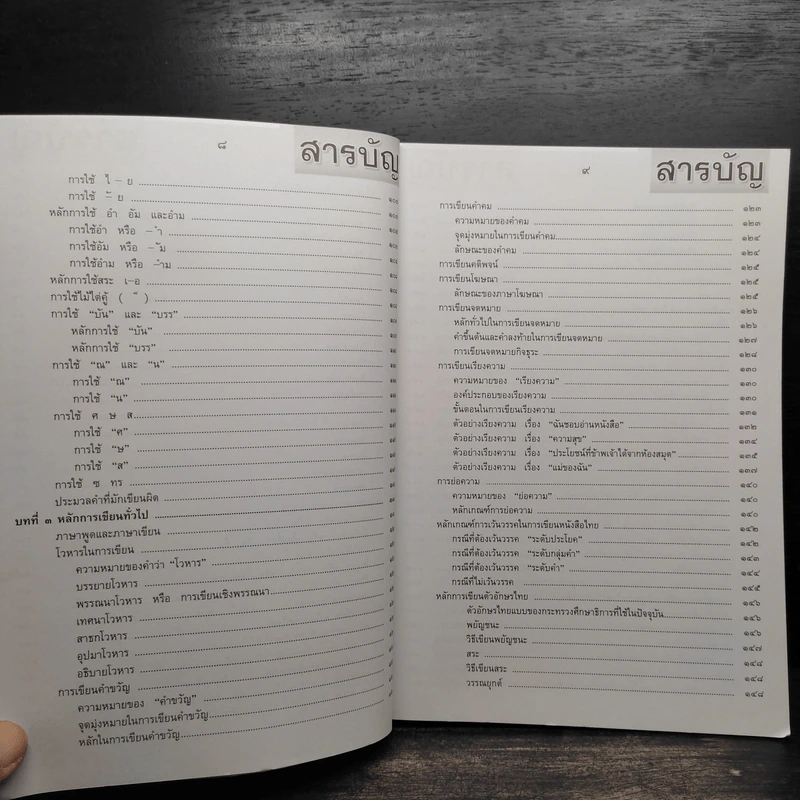 ๘
สารบัญ
การใช้ ไ – ย
การใช้ –ั ย
หลักการใช้ อำ อัม และอำม
การใช้อำ หรือ –ำ
การใช้อัม หรือ –ัม
การใช้อำม หรือ –ำม
หลักการใช้สระ เ–อ
การใช้ไม้ไต่คู้ ( ็ )
การใช้ “บัน” และ “บรร”
หลักการใช้ “บัน”
หลักการใช้ “บรร”
การใช้ “ณ” และ “น”
การใช้ “ณ”
การใช้ “น”
การใช้ ศ ษ ส
การใช้ “ศ”
การใช้ “ษ”
การใช้ “ส”
การใช้ ซ ทร
ประมวลคำที่มักเขียนผิด
บทที่ ๓ หลักการเขียนทั่วไป
ภาษาพูดและภาษาเขียน
โวหารในการเขียน
ความหมายของคำว่า “โวหาร”
บรรยายโวหาร
พรรณนาโวหาร หรือ การเขียนเชิงพรรณนา
เทศนาโวหาร
สาธกโวหาร
อุปมาโวหาร
อธิบายโวหาร
การเขียนคำขวัญ
ความหมายของ “คำขวัญ”
จุดมุ่งหมายในการเขียนคำขวัญ
หลักในการเขียนคำขวัญ
๙
สารบัญ
การเขียนคำคม ๑๒๓
ความหมายของคำคม ๑๒๓
จุดมุ่งหมายในการเขียนคำคม ๑๒๔
ลักษณะของคำคม ๑๒๔
การเขียนคติพจน์ ๑๒๕
การเขียนโฆษณา ๑๒๕
ลักษณะของภาษาโฆษณา ๑๒๕
การเขียนจดหมาย ๑๒๖
หลักทั่วไปในการเขียนจดหมาย ๑๒๖
คำขึ้นต้นและคำลงท้ายในการเขียนจดหมาย ๑๒๗
การเขียนจดหมายกิจธุระ ๑๒๘
การเขียนเรียงความ ๑๓๐
ความหมายของ “เรียงความ” ๑๓๐
องค์ประกอบของเรียงความ ๑๓๐
ขั้นตอนในการเขียนเรียงความ ๑๓๑
ตัวอย่างเรียงความ เรื่อง “ฉันชอบอ่านหนังสือ” ๑๓๒
ตัวอย่างเรียงความ เรื่อง “ความสุข” ๑๓๔
ตัวอย่างเรียงความ เรื่อง “ประโยชน์ที่ข้าพเจ้าได้จากห้องสมุด” ๑๓๕
ตัวอย่างเรียงความ เรื่อง “แม่ของฉัน” ๑๓๗
การย่อความ ๑๔๐
ความหมายของ “ย่อความ” ๑๔๐
หลักเกณฑ์การย่อความ ๑๔๐
หลักเกณฑ์การเว้นวรรคในการเขียนหนังสือไทย ๑๔๒
กรณีที่ต้องเว้นวรรค “ระดับประโยค” ๑๔๒
กรณีที่ต้องเว้นวรรค “ระดับกลุ่มคำ” ๑๔๓
กรณีที่ต้องเว้นวรรค “ระดับคำ” ๑๔๔
กรณีที่ไม่เว้นวรรค ๑๔๕
หลักการเขียนตัวอักษรไทย ๑๔๖
ตัวอักษรไทยแบบของกระทรวงศึกษาธิการที่ใช้ในปัจจุบัน ๑๔๖
พยัญชนะ ๑๔๖
วิธีเขียนพยัญชนะ ๑๔๗
สระ ๑๔๘
วิธีเขียนสระ ๑๔๘
วรรณยุกต์ ๑๔๘